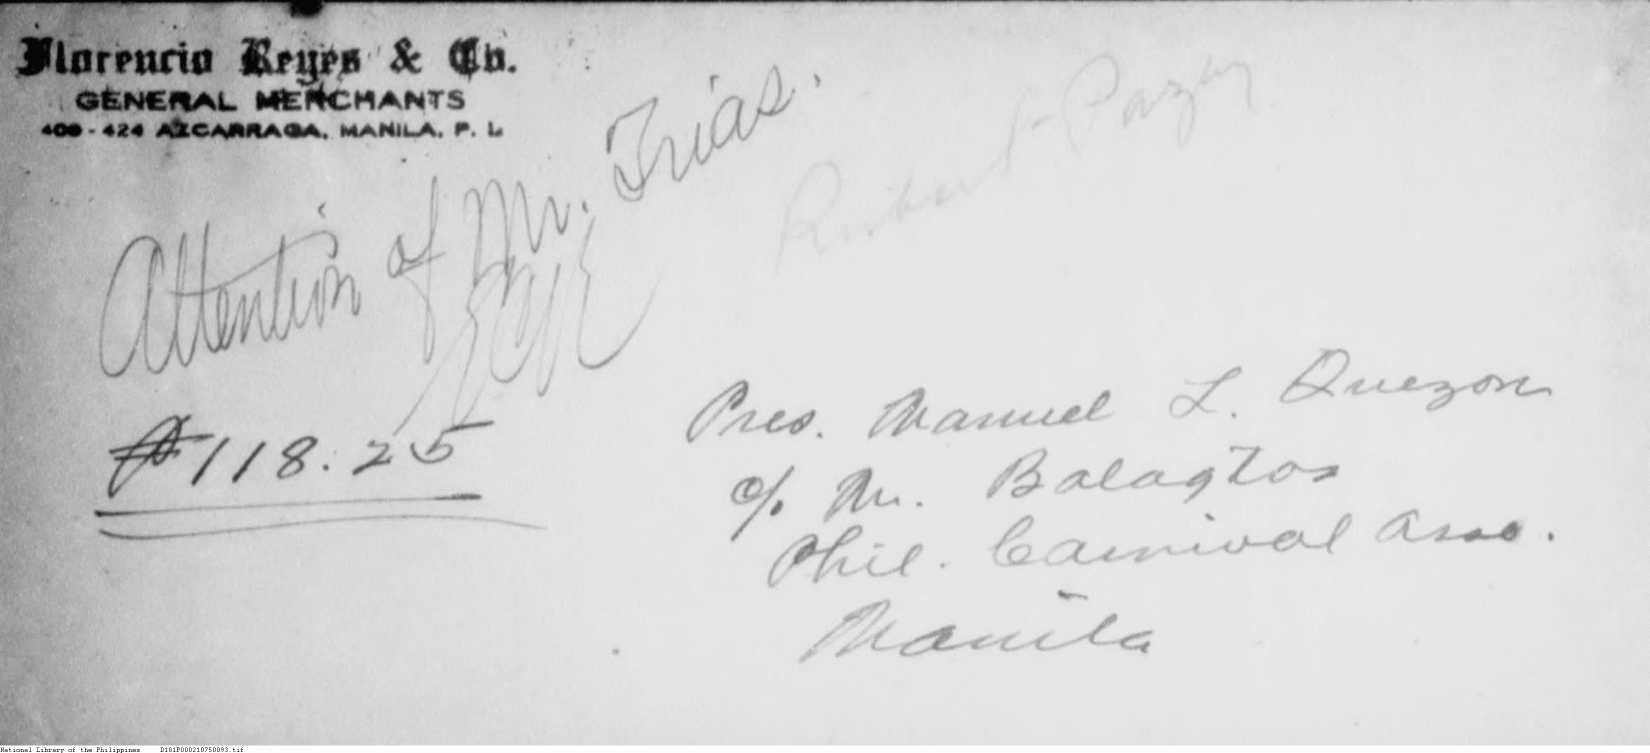 Florencio Reyes & Co.
GENERAL MERCHANTS
400 - 424 AZCARRAGA, MANILA, P. I.
Attention of Mr. Trias.
₱118.25
Pres. Manuel L. Quezon
c/o Mr. Balagtas
Phil. Carnival Asso.
Manila
National Library of the Philippines D101P000210750093.tif